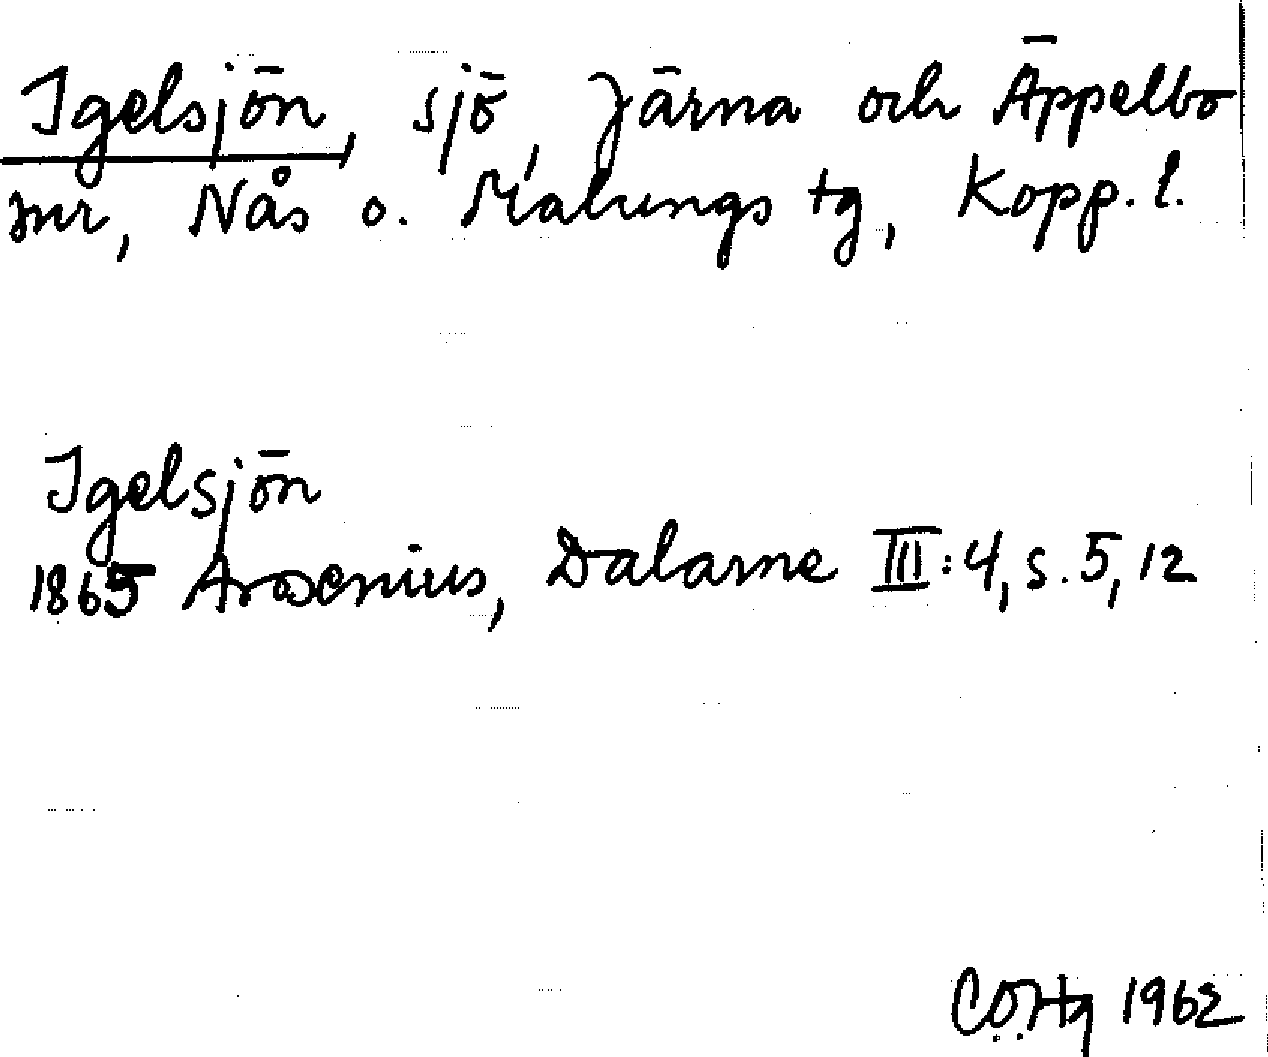 Igelsjön, sjö, Järna och Äppelbo
snr, Nås o. Malungs tg, Kopp. l.
Igelsjön
1865 Arosenius, Dalarne III:4, s. 5, 12
1962